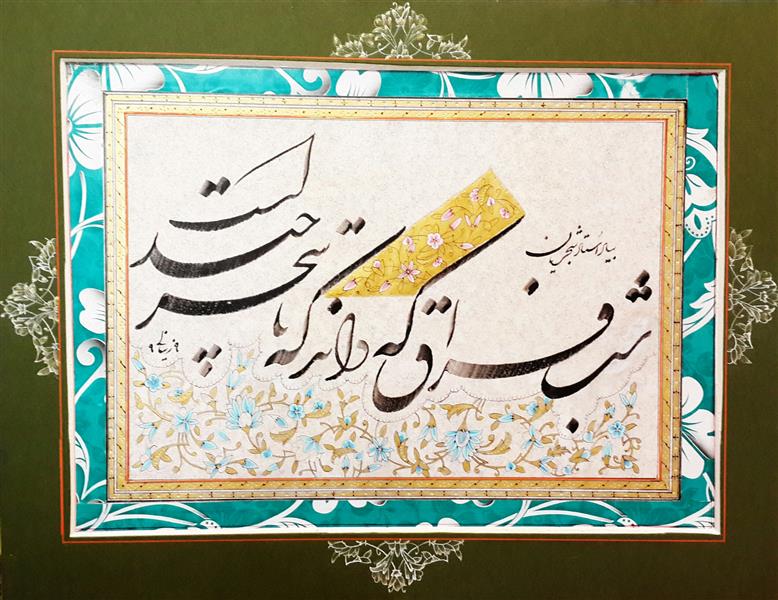 بیاد استاد شجریان
شب فراق که داند که تا سحر چند است